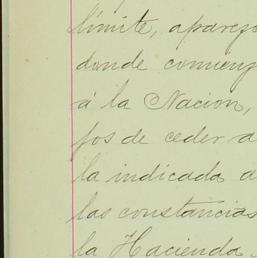 límite, aparez
donde comienz
á la Nacion,
jos de ceder a
la indicada a
las constancias
la Hacienda